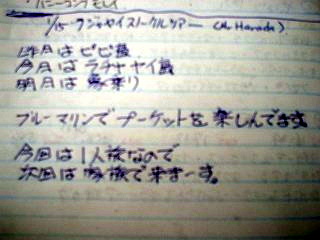 1/15 ラジャヤイスノーケルツアー (Mr Harada)
昨日はピピ島
今日はラチャヤイ島
明日は象乗り
ブルーマリンでプーケットを楽しんでます
今回は1人旅なので
次回は家族で来まーす。